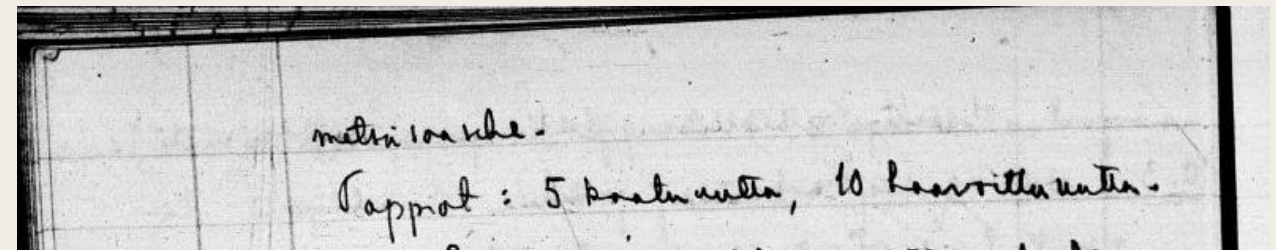 metsäsaareke.
Tappiot : 5 kaatunutta, 10 haavoittunutta.